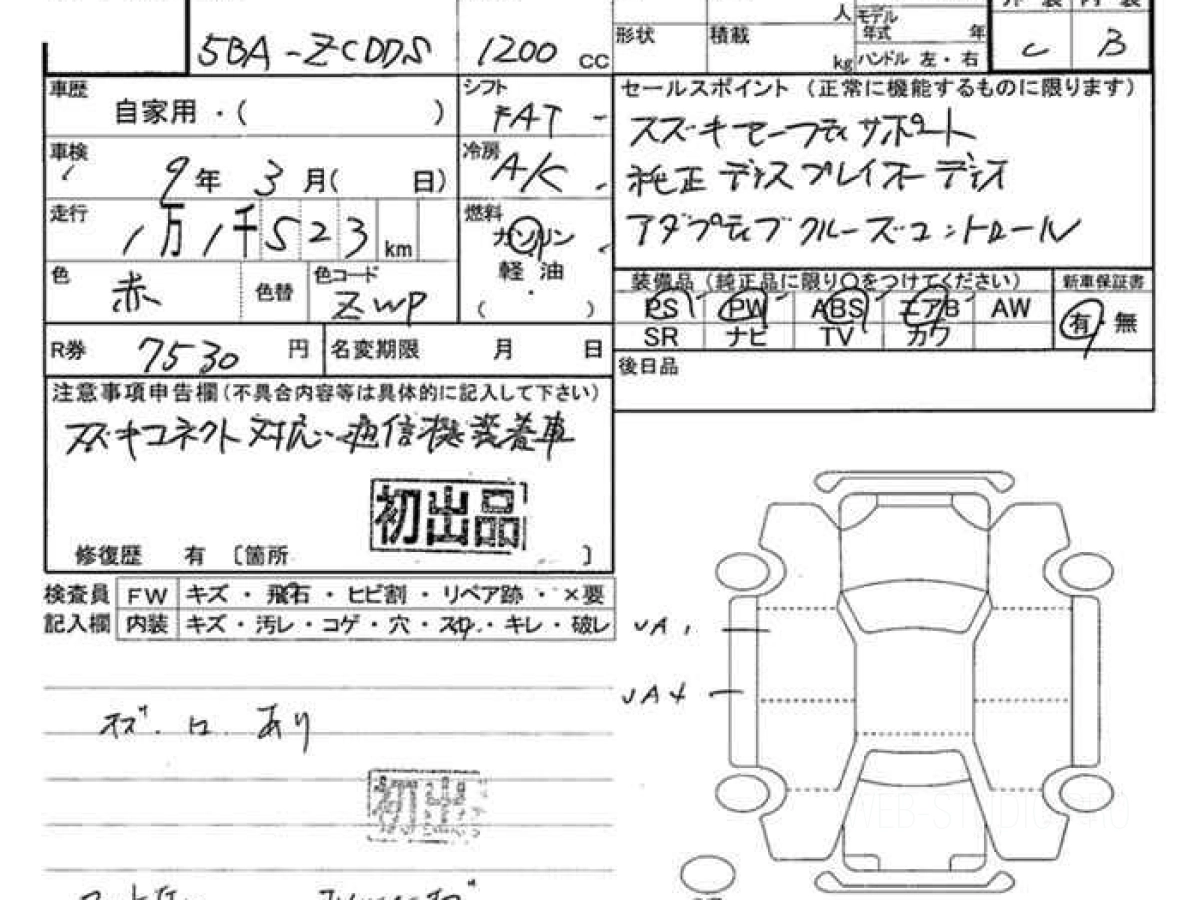 人 モデル 外装 内装
形状 積載 年式 年
5BA-ZCDDS 1200 cc kg ハンドル 左・右 C B
車歴 自家用・( ) シフト FAT セールスポイント (正常に機能するものに限ります)
スズキセーフティサポート
車検 9年 3月( 日) 冷房 A/C 純正 ディスプレイオーディオ
走行 1万1千523km 燃料 ガソリン アダプティブクルーズコントロール
色 赤 色替 色コード ZWP 軽油 ( ・ )
装備品 (純正品に限り○をつけてください) 新車保証書
PS PW ABS エアB AW 有・無
SR ナビ TV カワ
R券 7530 円 名変期限 月 日
後日品
注意事項申告欄(不具合内容等は具体的に記入して下さい)
スズキコネクト対応通信機装着車
初出品
修復歴 有 〔箇所 〕
検査員 FW キズ・飛石・ヒビ割・リペア跡・×要
記入欄 内装 キズ・汚レ・コゲ・穴・スレ・キレ・破レ
UA1
UA4
キズ. あり
初出